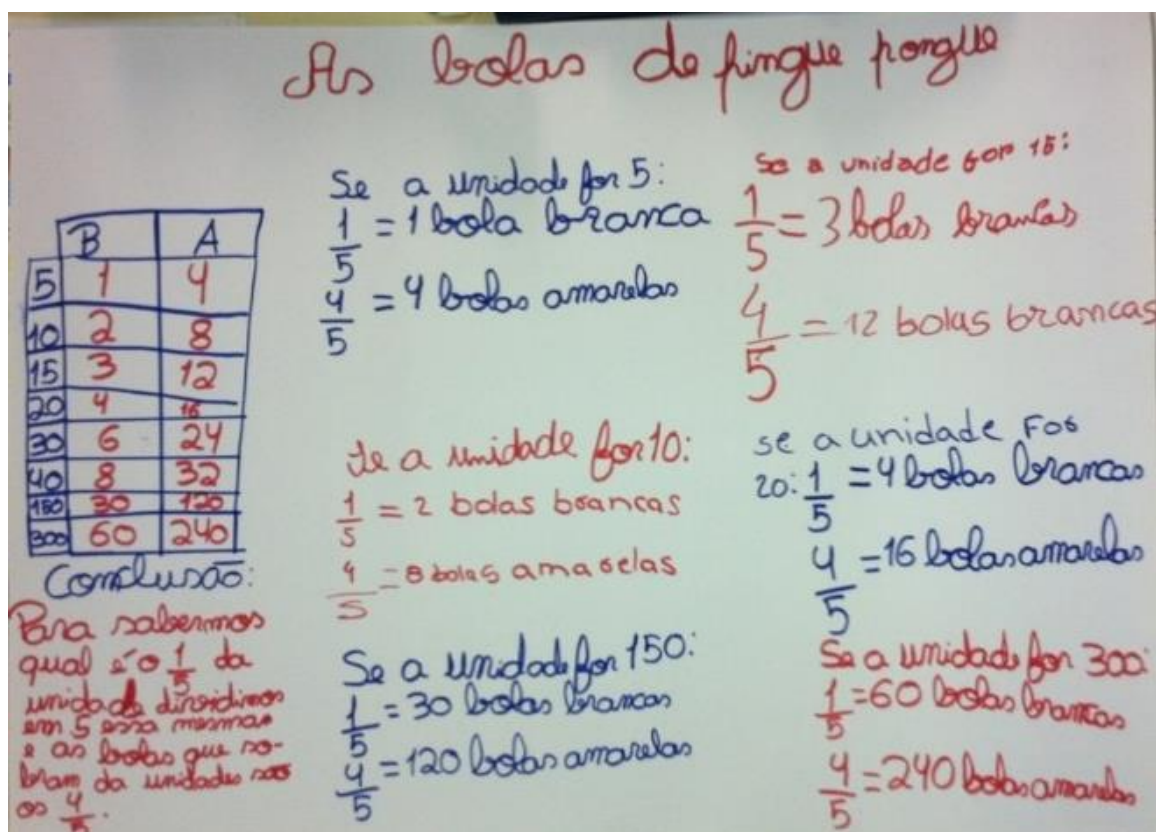 As bolas de pingue pongue
B A
5 1 4
10 2 8
15 3 12
20 4 16
30 6 24
40 8 32
150 30 120
300 60 240
Conclusão:
Para sabermos
qual é o 1/5 da
unidade dividimos
em 5 essa mesma
e as bolas que so-
bram da unidades são
os 4/5.
Se a unidade for 5:
1/5 = 1 bola branca
4/5 = 4 bolas amarelas
Se a unidade for 10:
1/5 = 2 bolas brancas
4/5 = 8 bolas amarelas
Se a unidade for 150:
1/5 = 30 bolas brancas
4/5 = 120 bolas amarelas
Se a unidade for 15:
1/5 = 3 bolas brancas
4/5 = 12 bolas brancas
se a unidade For
20: 1/5 = 4 bolas brancas
4/5 = 16 bolas amarelas
Se a unidade for 300:
1/5 = 60 bolas brancas
4/5 = 240 bolas amarelas